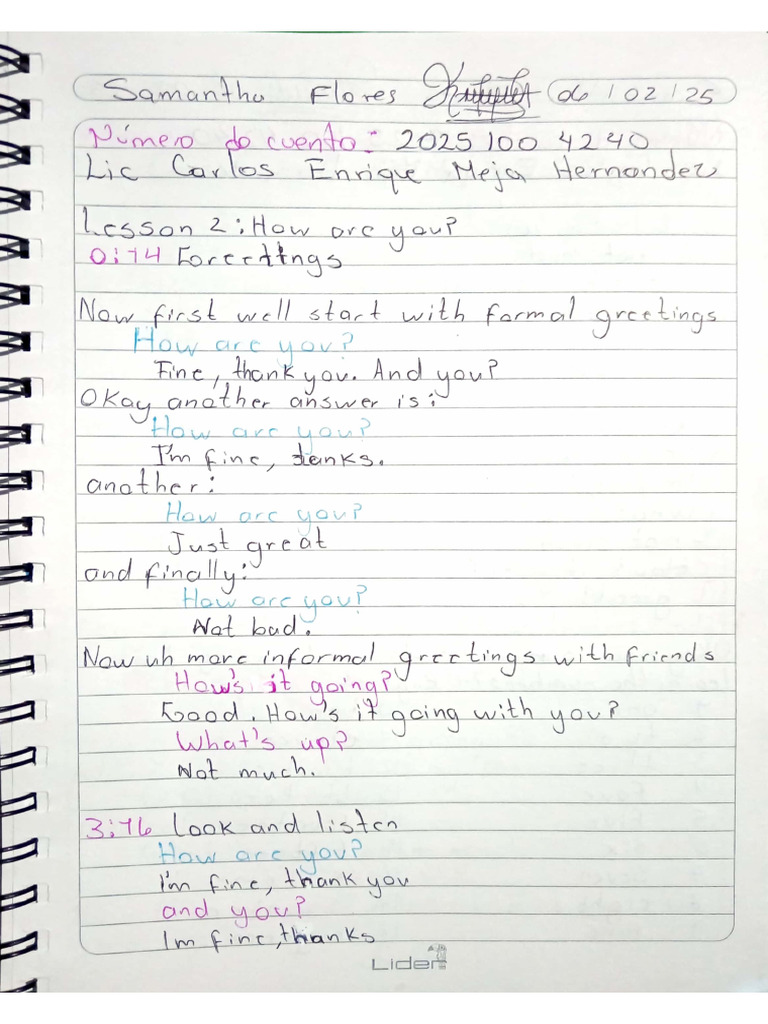 Samantha Flores 06/02/25
Número de cuenta: 20251004240
Lic Carlos Enrique Mejia Hernandez
Lesson 2: How are you?
0:14 Greettings
Now first well start with formal greetings
How are you?
Fine, thank you. And you?
Okay another answer is:
How are you?
I'm fine, tanks.
another:
How are you?
Just great
and finally:
How are you?
Not bad.
Now uh more informal greetings with friends
How's it going?
Good. How's it going with you?
What's up?
Not much.
3:16 Look and listen
How are you?
I'm fine, thank you
and you?
Im fine, thanks
Lider